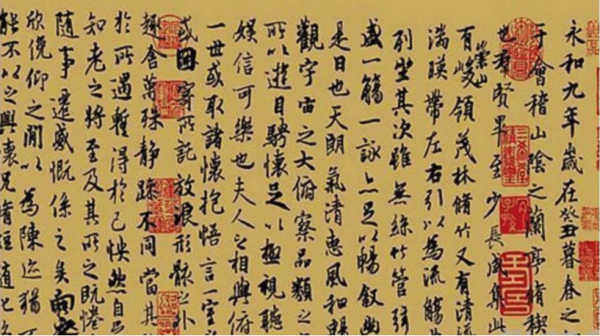 永和九年歲在癸丑暮春之
于會稽山陰之蘭亭脩稧
也羣賢畢至少長咸集此
有崇山峻領茂林脩竹又有清流
湍暎帶左右引以為流觴
列坐其次雖無絲竹管弦
盛一觴一詠亦足以暢敘幽
是日也天朗氣清惠風和暢
觀宇宙之大俯察品類之
所以遊目騁懷足以極視聽
娛信可樂也夫人之相與俯
一世或取諸懷抱悟言一室
或因寄所託放浪形骸之外
趣舍萬殊靜躁不同當其
於所遇暫得於己快然自
知老之將至及其所之既惓
隨事遷感慨係之矣向
欣俛仰之閒以為陳迹猶不
能不以之興懷況脩短隨化